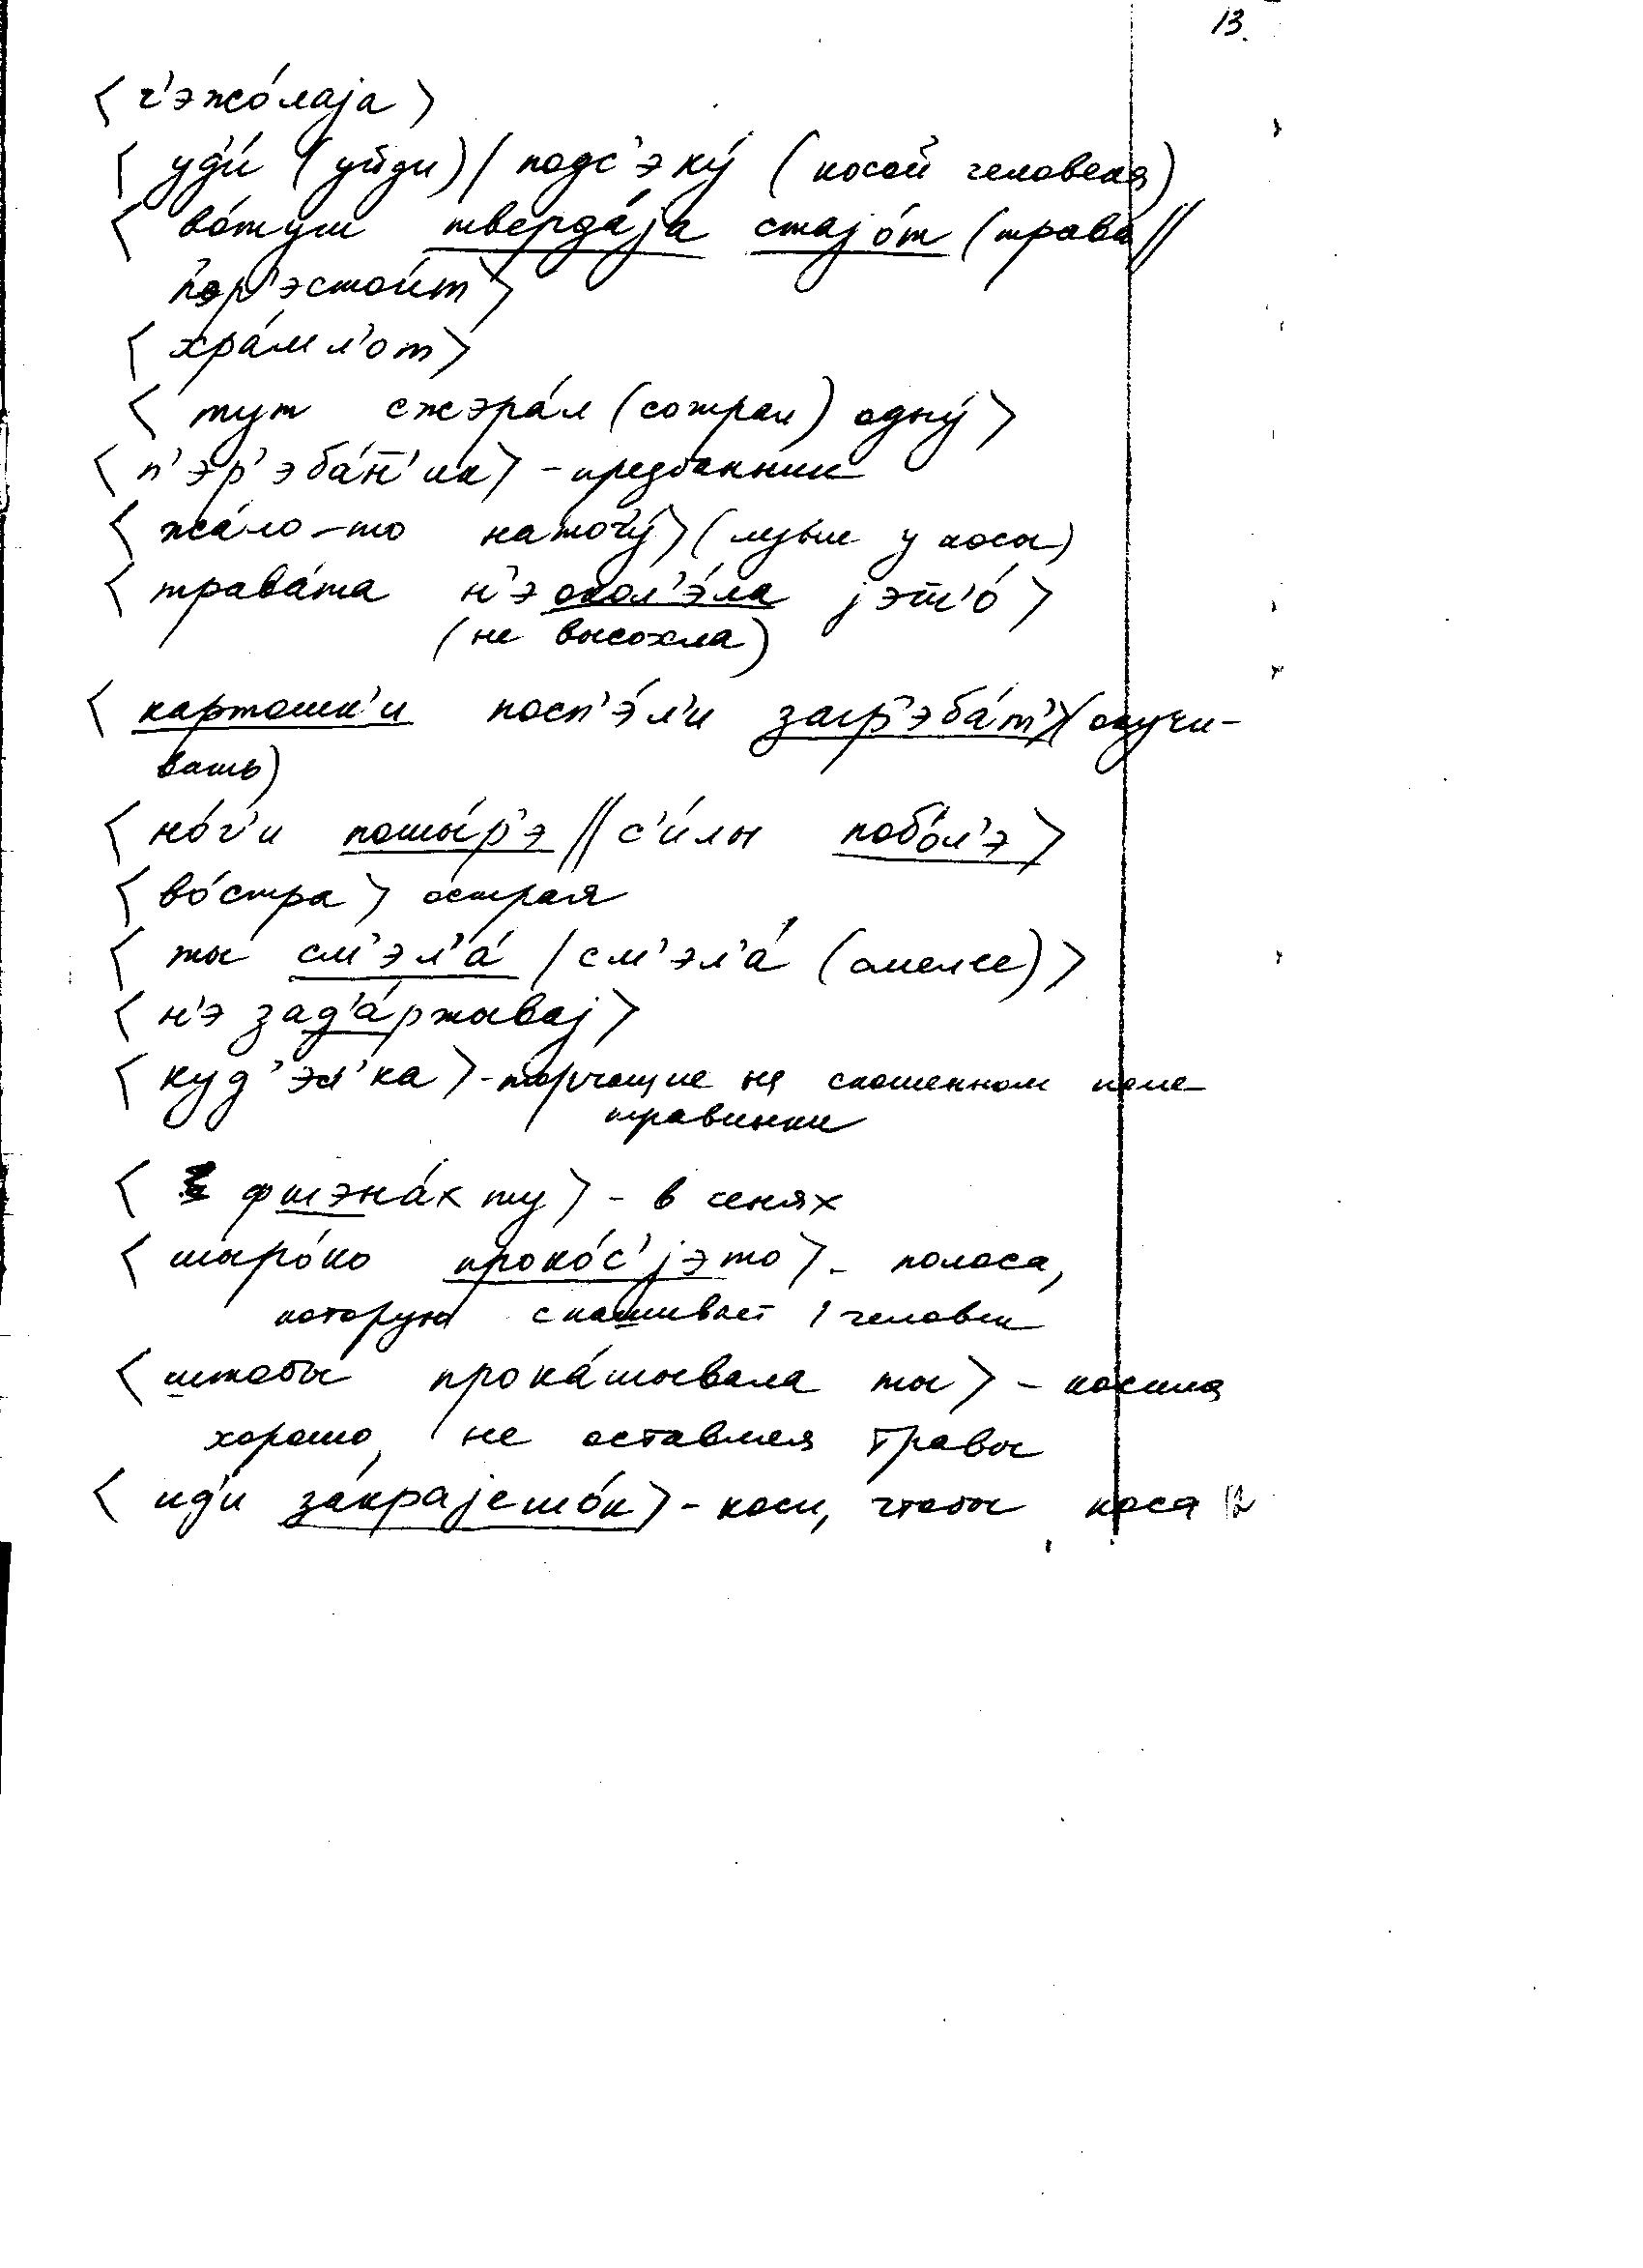 13.
< т'эжо́лаjа >
< уд'и́ (уйди) / подс'эку́ (косой человека)
< во́туш тверда́jа стаjо́т (трава //
п'эр'эстои́т >
< хра́мл'от >
< тут сжэра́л (сожрал) одну́ >
< п'эр'эба́н̅'ик > - предбанник
< жа́ло-то наточу́ > (лезвие у косы)
< трава́та н'э окол'э́ла jэш'о́ >
(не высохла)
< картошк'и посп'э́л'и загр'эба́т' > (окучи-
вать)
< но́г'и пошы́р'э // с'и́лы побо́л'э >
< во́стра > острая
< ты см'эл'а́ / см'эл'а́ (смелее) >
< н'э зад'а́ржываj >
< куд'эл'ка > - торчащие на скошенном поле
травинки
< фшэна́к ту > - в сенях
< шыро́ко проко́с' jэто > - полоса,
которую скашивает 1 человек
< штобы прока́шывала ты > - косила
хорошо, не оставляя травы
< ид'и за́краjешо́к > - коси, чтобы коса